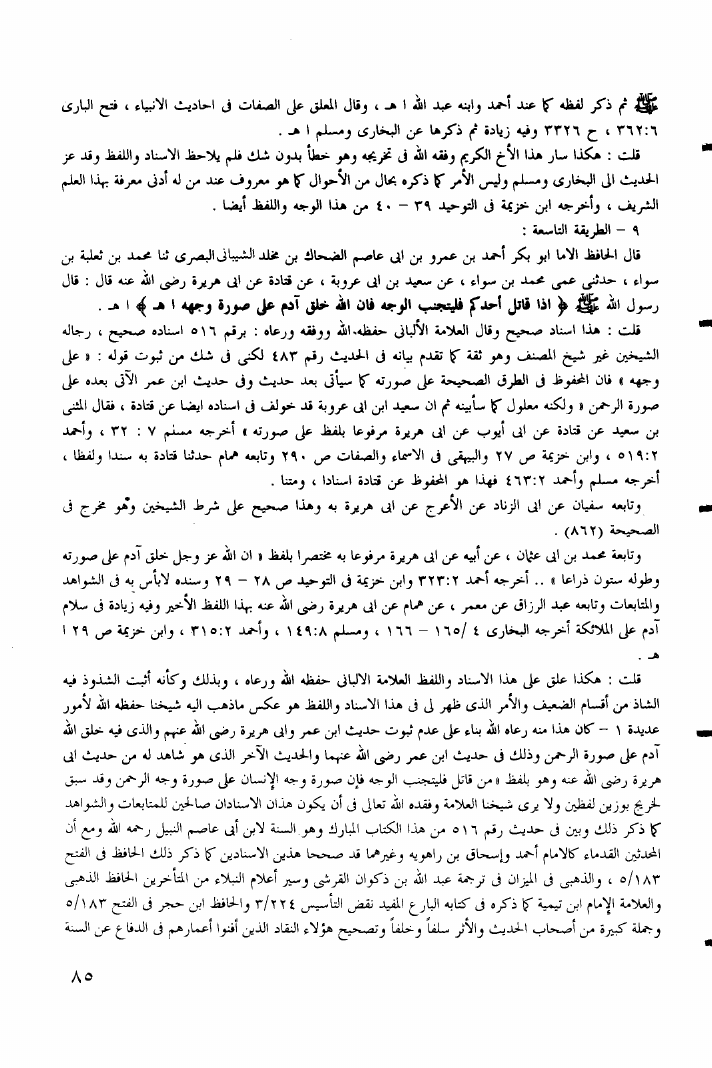 ﷺ ثم ذكر لفظه كما عند أحمد وابنه عبد الله ا هـ ، وقال المعلق على الصفات فى احاديث الانبياء ، فتح البارى
٣٦٢:٦ ، ح ٣٣٢٦ وفيه زيادة ثم ذكرها عن البخارى ومسلم ا هـ .
قلت : هكذا سار هذا الأخ الكريم وفقه الله فى تخريجه وهو خطأ بدون شك فلم يلاحظ الاسناد واللفظ وقد عز
الحديث الى البخارى ومسلم وليس الأمر كما ذكره بحال من الأحوال كما هو معروف عند من له أدنى معرفة بهذا العلم
الشريف ، وأخرجه ابن خزيمة فى التوحيد ٣٩ – ٤٠ من هذا الوجه واللفظ أيضا .
٩ – الطريقة التاسعة :
قال الحافظ الاما ابو بكر أحمد بن عمرو بن ابى عاصم الضحاك بن مخلد الشيبانى البصرى ثنا محمد بن ثعلبة بن
سواء ، حدثنى عمى محمد بن سواء ، عن سعيد بن ابى عروبة ، عن قتادة عن ابى هريرة رضى الله عنه قال : قال
رسول الله ﷺ ﴿ اذا قاتل أحدكم فليتجنب الوجه فان الله خلق آدم على صورة وجهه ا هـ ﴾ ا هـ .
قلت : هذا اسناد صحيح وقال العلامة الألبانى حفظه الله ووفقه ورعاه : برقم ٥١٦ اسناده صحيح ، رجاله
الشيخين غير شيخ المصنف وهو ثقة كما تقدم بيانه فى الحديث رقم ٤٨٣ لكنى فى شك من ثبوت قوله : « على
وجهه » فان المحفوظ فى الطرق الصحيحة على صورته كما سيأتى بعد حديث وفى حديث ابن عمر الآتى بعده على
صورة الرحمن « ولكنه معلول كما سأبينه ثم ان سعيد ابن ابى عروبة قد خولف فى اسناده ايضا عن قتادة ، فقال المثنى
بن سعيد عن قتادة عن ابى أيوب عن ابى هريرة مرفوعا بلفظ على صورته » أخرجه مسلم ٧ : ٣٢ ، وأحمد
٥١٩:٢ ، وابن خزيمة ص ٢٧ والبيهقى فى الاسماء والصفات ص ٢٩٠ وتابعه همام حدثنا قتادة به سندا ولفظا ،
أخرجه مسلم وأحمد ٤٦٣:٢ فهذا هو المحفوظ عن قتادة اسنادا ، ومتنا .
وتابعه سفيان عن ابى الزناد عن الأعرج عن ابى هريرة به وهذا صحيح على شرط الشيخين وهو مخرج فى
الصحيحة (٨٦٢) .
وتابعة محمد بن ابى عثمان ، عن أبيه عن ابى هريرة مرفوعا به مختصرا بلفظ « ان الله عز وجل خلق آدم على صورته
وطوله ستون ذراعا » .. أخرجه أحمد ٣٢٣:٢ وابن خزيمة فى التوحيد ص ٢٨ – ٢٩ وسنده لابأس به فى الشواهد
والمتابعات وتابعه عبد الرزاق عن معمر ، عن همام عن ابى هريرة رضى الله عنه بهذا اللفظ الأخير وفيه زيادة فى سلام
آدم على الملائكة أخرجه البخارى ٤ /١٦٥ – ١٦٦ ، ومسلم ١٤٩:٨ ، وأحمد ٣١٥:٢ ، وابن خزيمة ص ٢٩ ا
هـ .
قلت : هكذا علق على هذا الاسناد واللفظ العلامة الالبانى حفظه الله ورعاه ، وبذلك وكأنه أثبت الشذوذ فيه
الشاذ من أقسام الضعيف والأمر الذى ظهر لى فى هذا الاسناد واللفظ هو عكس ماذهب اليه شيخنا حفظه الله لأمور
عديدة ١ – كان هذا منه رعاه الله بناء على عدم ثبوت حديث ابن عمر وابى هريرة رضى الله عنهم والذى فيه خلق الله
آدم على صورة الرحمن وذلك فى حديث ابن عمر رضى الله عنهما والحديث الآخر الذى هو شاهد له من حديث ابى
هريرة رضى الله عنه وهو بلفظ « من قاتل فليتجنب الوجه فإن صورة وجه الإنسان على صورة وجه الرحمن وقد سبق
لخريج بوزين لفظين ولا يرى شيخنا العلامة وفقده الله تعالى فى أن يكون هذان الاسنادان صالحين للمتابعات والشواهد
كما ذكر ذلك وبين فى حديث رقم ٥١٦ من هذا الكتاب المبارك وهو السنة لابن أبى عاصم النبيل رحمه الله ومع أن
المحدثين القدماء كالامام أحمد وإسحاق بن راهويه وغيرهما قد صححا هذين الاسنادين كما ذكر ذلك الحافظ فى الفتح
٥/١٨٣ ، والذهبى فى الميزان فى ترجمة عبد الله بن ذكوان القرشى وسير أعلام النبلاء من المتأخرين الحافظ الذهبى
والعلامة الإمام ابن تيمية كما ذكره فى كتابه البارع المفيد نقض التأسيس ٣/٢٢٤ والحافظ ابن حجر فى الفتح ٥/١٨٣
وجملة كبيرة من أصحاب الحديث والأثر سلفاً وخلفاً وتصحيح هؤلاء النقاد الذين أفنوا أعمارهم فى الدفاع عن السنة
٨٥